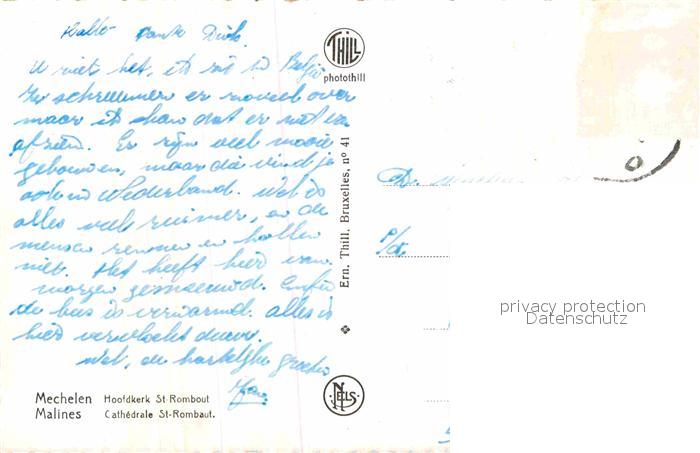 Hallo tante Dirk.
U ziet het, ik zit in België
Ze schreeuwen er zoveel over
maar ik kan dat er niet van
afzien. Er zijn veel mooie
gebouwen, maar die vind je
ook in Nederland. Wel is
alles veel ruimer, en de
mensen rennen en hollen
niet. Het heeft hier van
morgen gesneeuwd. Enfin
de bus is verwarmd. alles is
hier vervloekt duur.
Wel, de hartelijke groeten
Mechelen Hoofdkerk St-Rombout
Malines Cathédrale St-Rombaut.
THILL
photothill
Ern. Thill, Bruxelles, nº 41
NELS
p/a
privacy protection
Datenschutz